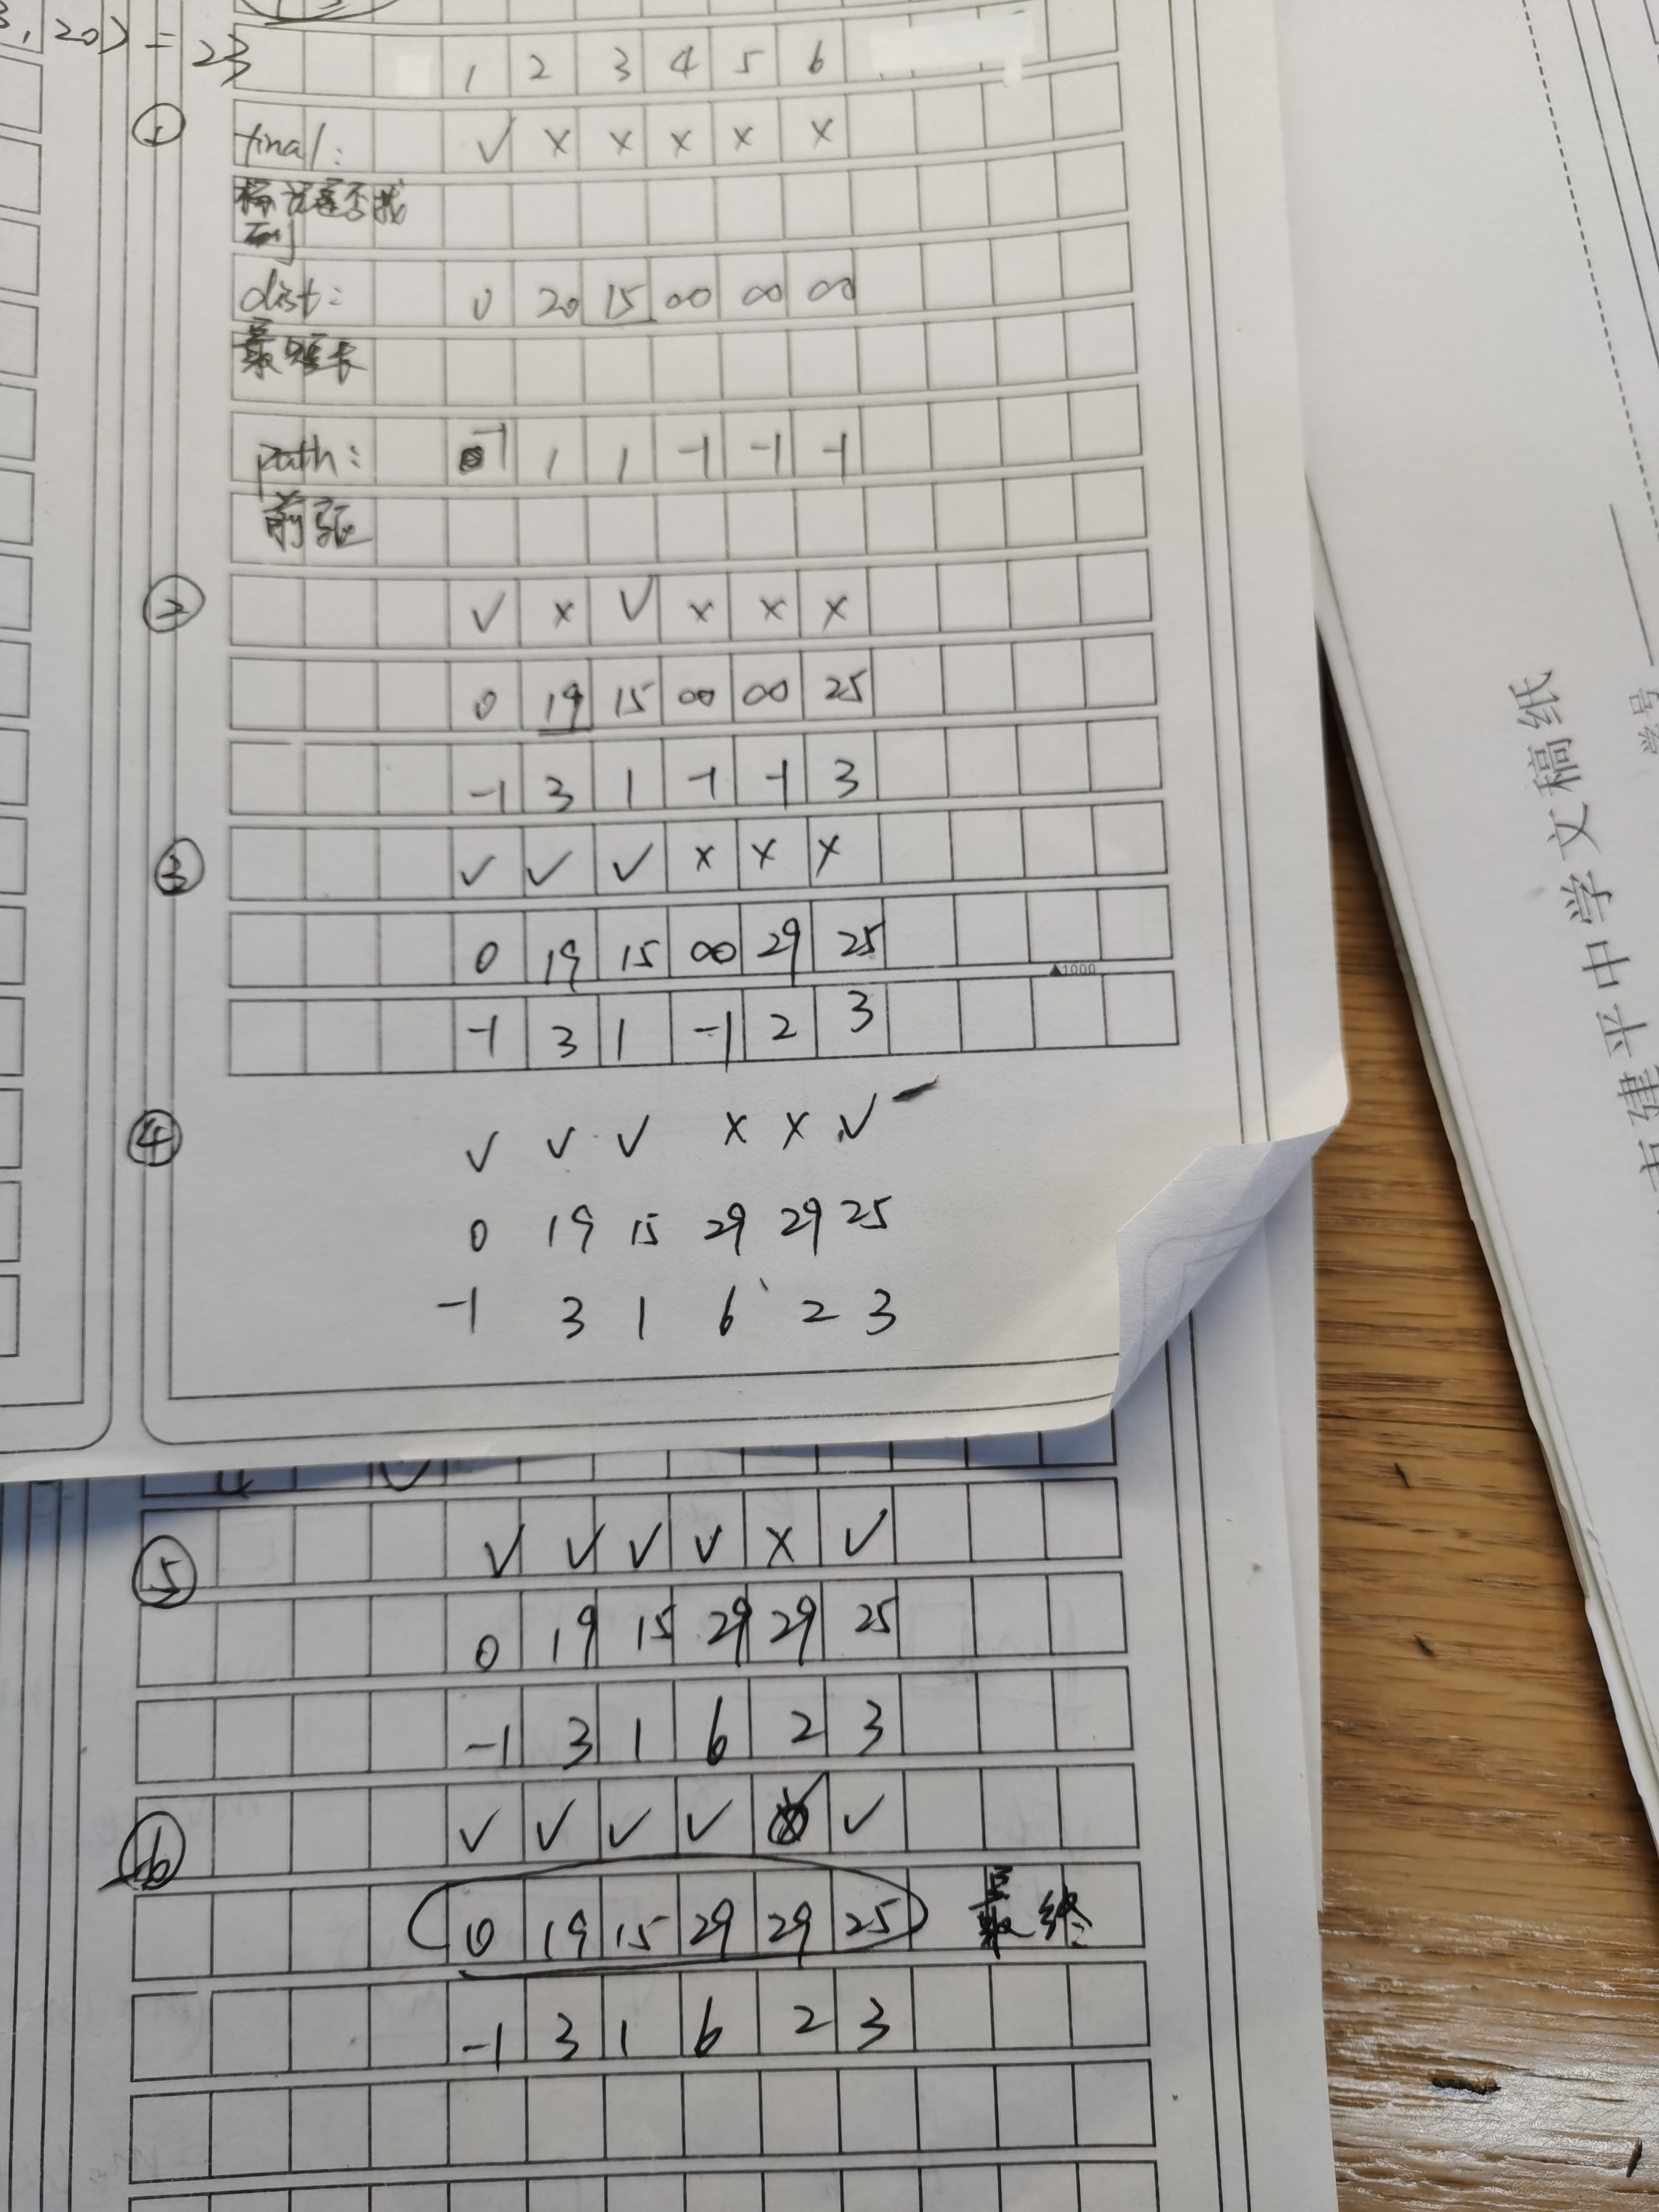 20) = 23
1 2 3 4 5 6
① final: √ × × × × ×
标记是否找
到
dist: 0 20 15 ∞ ∞ ∞
最短长
path: -1 1 1 -1 -1 -1
前驱
② √ × √ × × ×
0 19 15 ∞ ∞ 25
-1 3 1 -1 -1 3
③ √ √ √ × × ×
0 19 15 ∞ 29 25
▲1000
-1 3 1 -1 2 3
④ √ √ √ × × √
0 19 15 29 29 25
-1 3 1 6 2 3
⑤ √ √ √ √ × √
0 19 15 29 29 25
-1 3 1 6 2 3
⑥ √ √ √ √ √ √
0 19 15 29 29 25 最终
-1 3 1 6 2 3
建平中学文稿纸